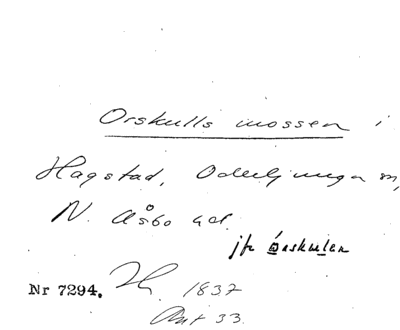 Orskulls mossen i
Hagstad, Oderljunga sn,
N. Åsbo hd.
jfr Örskulen
Nr 7294. 1837
Ant 33